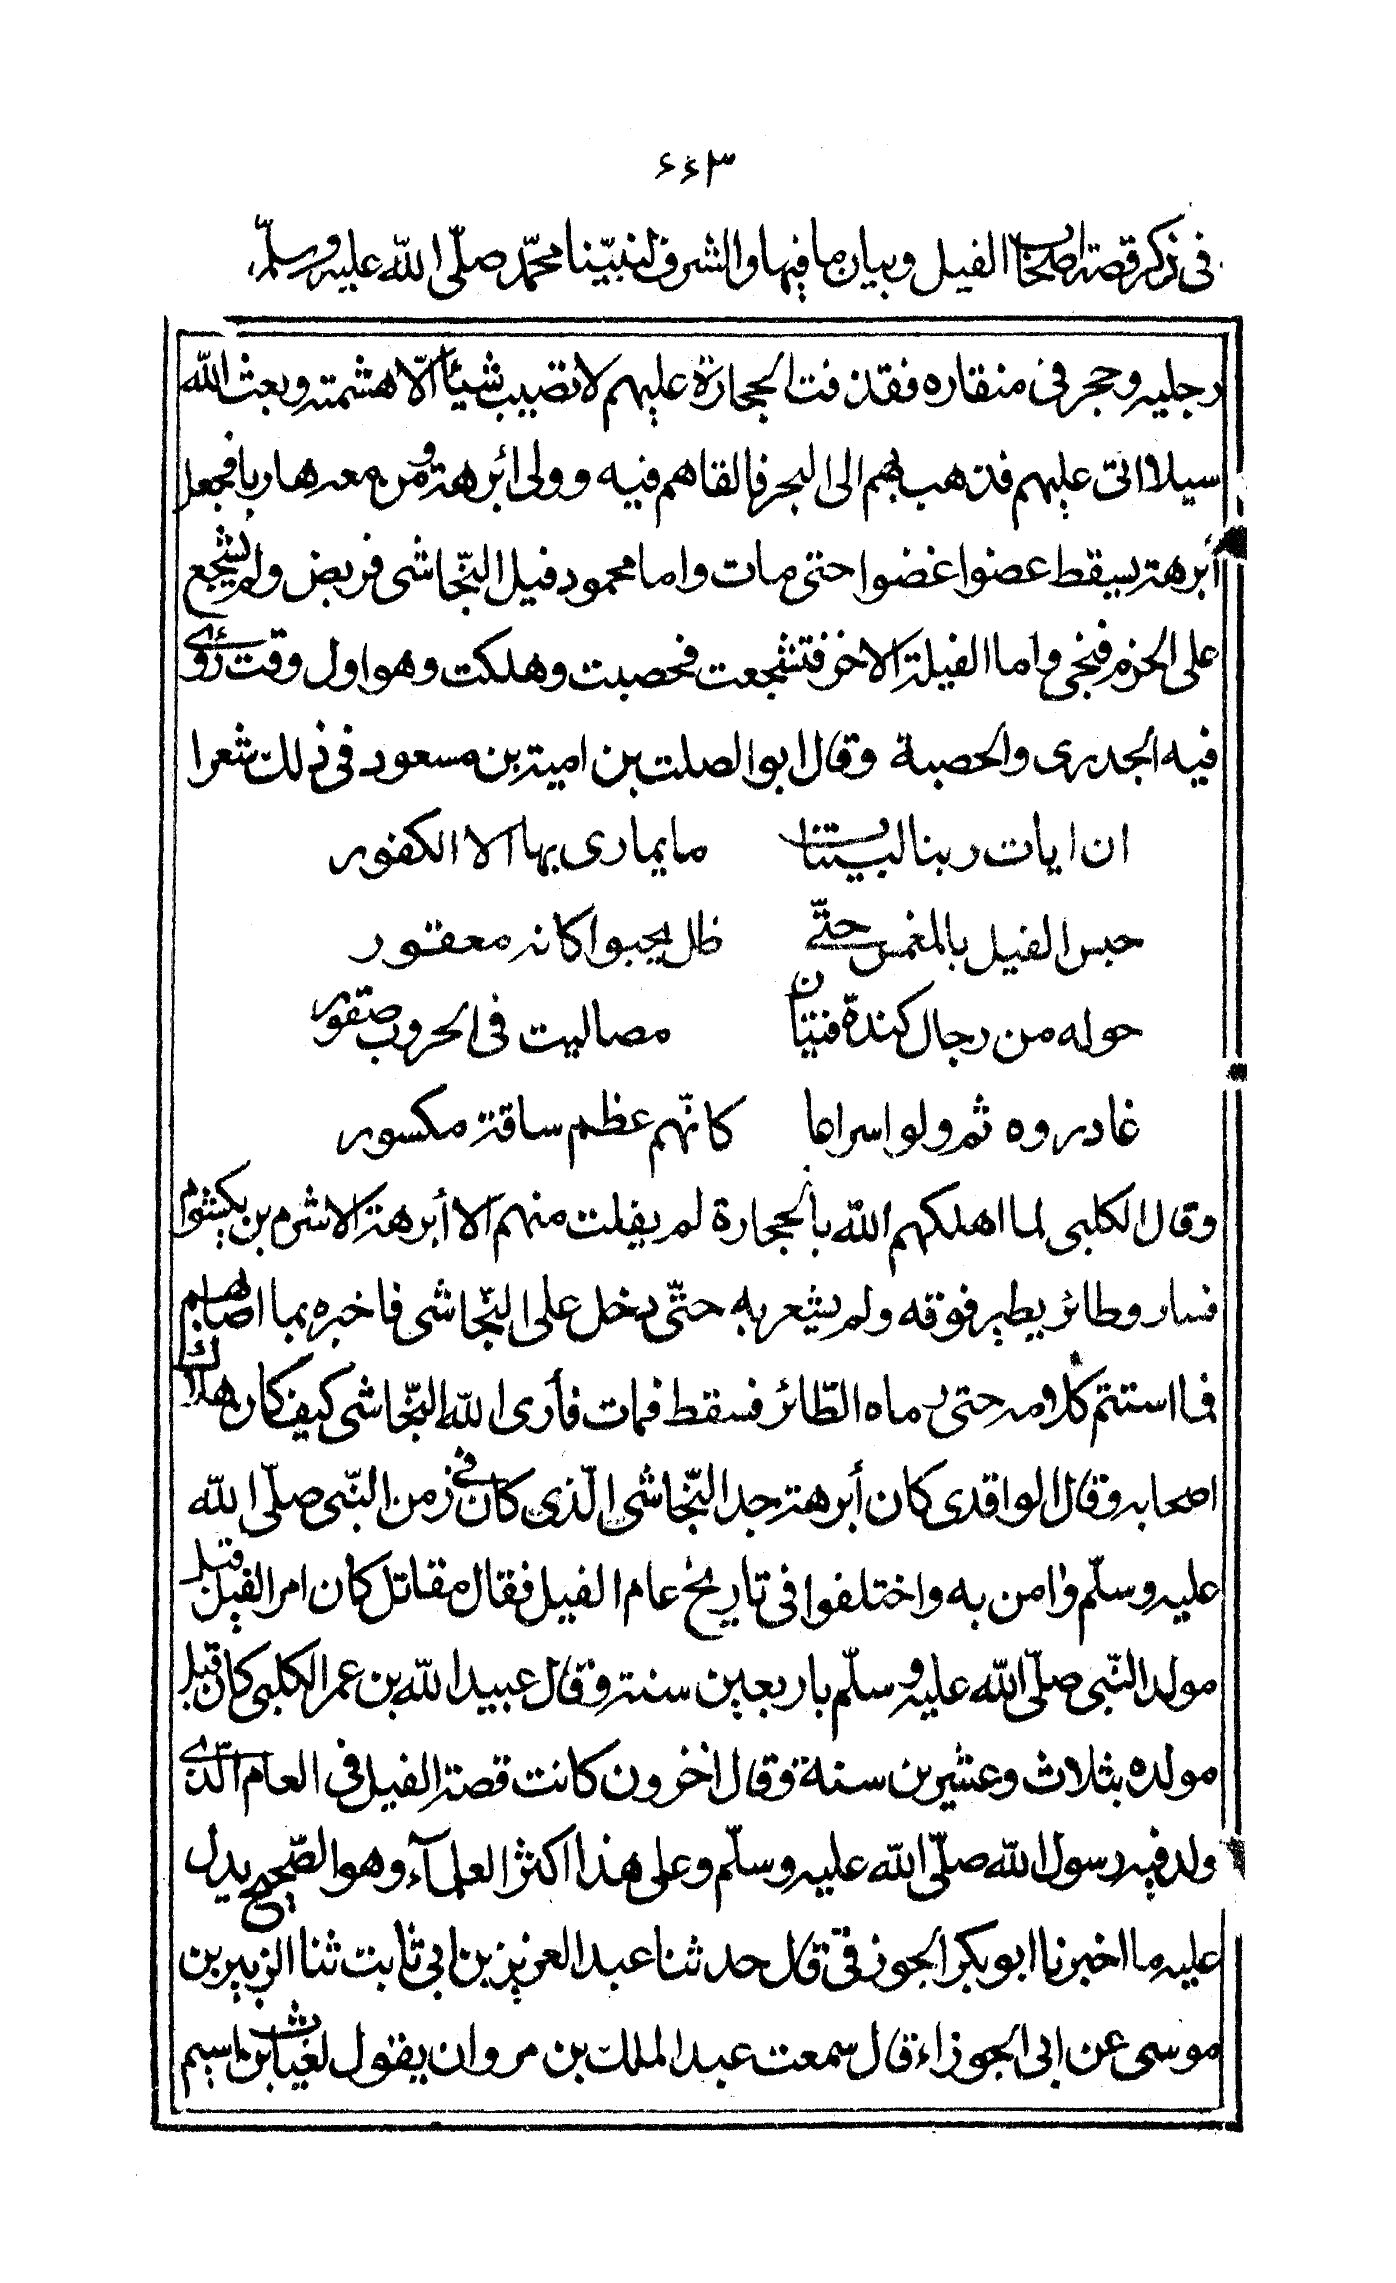 ٤٤٣
في ذكر قصة اصحاب الفيل وبيان ما فيها والشرف لنبيّنا محمّد صلّى الله عليه وسلّم
رجليه وحجر في منقاره فقذفت الحجارة عليهم لا تصيب شيئا الّا هشمته وبعث الله
سيلا اتى عليهم فذهب بهم الى البحر فالقاهم فيه وولى أبرهة ومن معه هاربا فجعل
أبرهة يسقط عضوا غضوا حتى مات واما محمود فيل النّجاشى فربض ولم يشجع
على الحرم فنجى واما الفيلة الاخر فتشجعت فحصبت وهلكت وهو اول وقت رؤى
فيه الجدرى والحصبة وقال ابو الصلت بن امية بن مسعود في ذلك شعرا
ان ايات ربنا لبيتنات ما يمارى بها الا الكفور
حبس الفيل بالمغمس حتّى ظل يحبوا كانه معقور
حوله من رجال كندة فتيان مصاليت في الحروب صقور
غادروه ثم ولوا سراعا كانّهم عظم ساقة مكسور
وقال الكلبى لما اهلكهم الله بالحجارة لم يفلت منهم الا أبرهة الاشرم بن يكشوم
فسار وطائر يطير فوقه ولم يشعر به حتّى دخل على النّجاشى فاخبره بما اصابهم
فما استتم كلامه حتى رماه الطّائر فسقط فمات فأرى الله النّجاشى كيف كان هلاك
اصحابه وقال الواقدى كان أبرهة جد النّجاشى الّذى كان في زمن النّبى صلّى الله
عليه وسلّم وامن به واختلفوا في تاريخ عام الفيل فقال مقاتل كان امر الفيل قبل
مولد النّبى صلّى الله عليه وسلّم باربعين سنة وقال عبيد الله بن عمر الكلبى كان قبل
مولده بثلاث وعشرين سنة وقال اخرون كانت قصة الفيل في العام الّذى
ولد فيه رسول الله صلّى الله عليه وسلّم وعلى هذا اكثر العلمآء وهو الصّحيح يدل
عليه ما اخبرنا ابو بكر الجوزقى قال حدثنا عبد العزيز بن ابى ثابت ثنا الزبير بن
موسى عن ابى الجوزاء قال سمعت عبد الملك بن مروان يقول لغياث بن